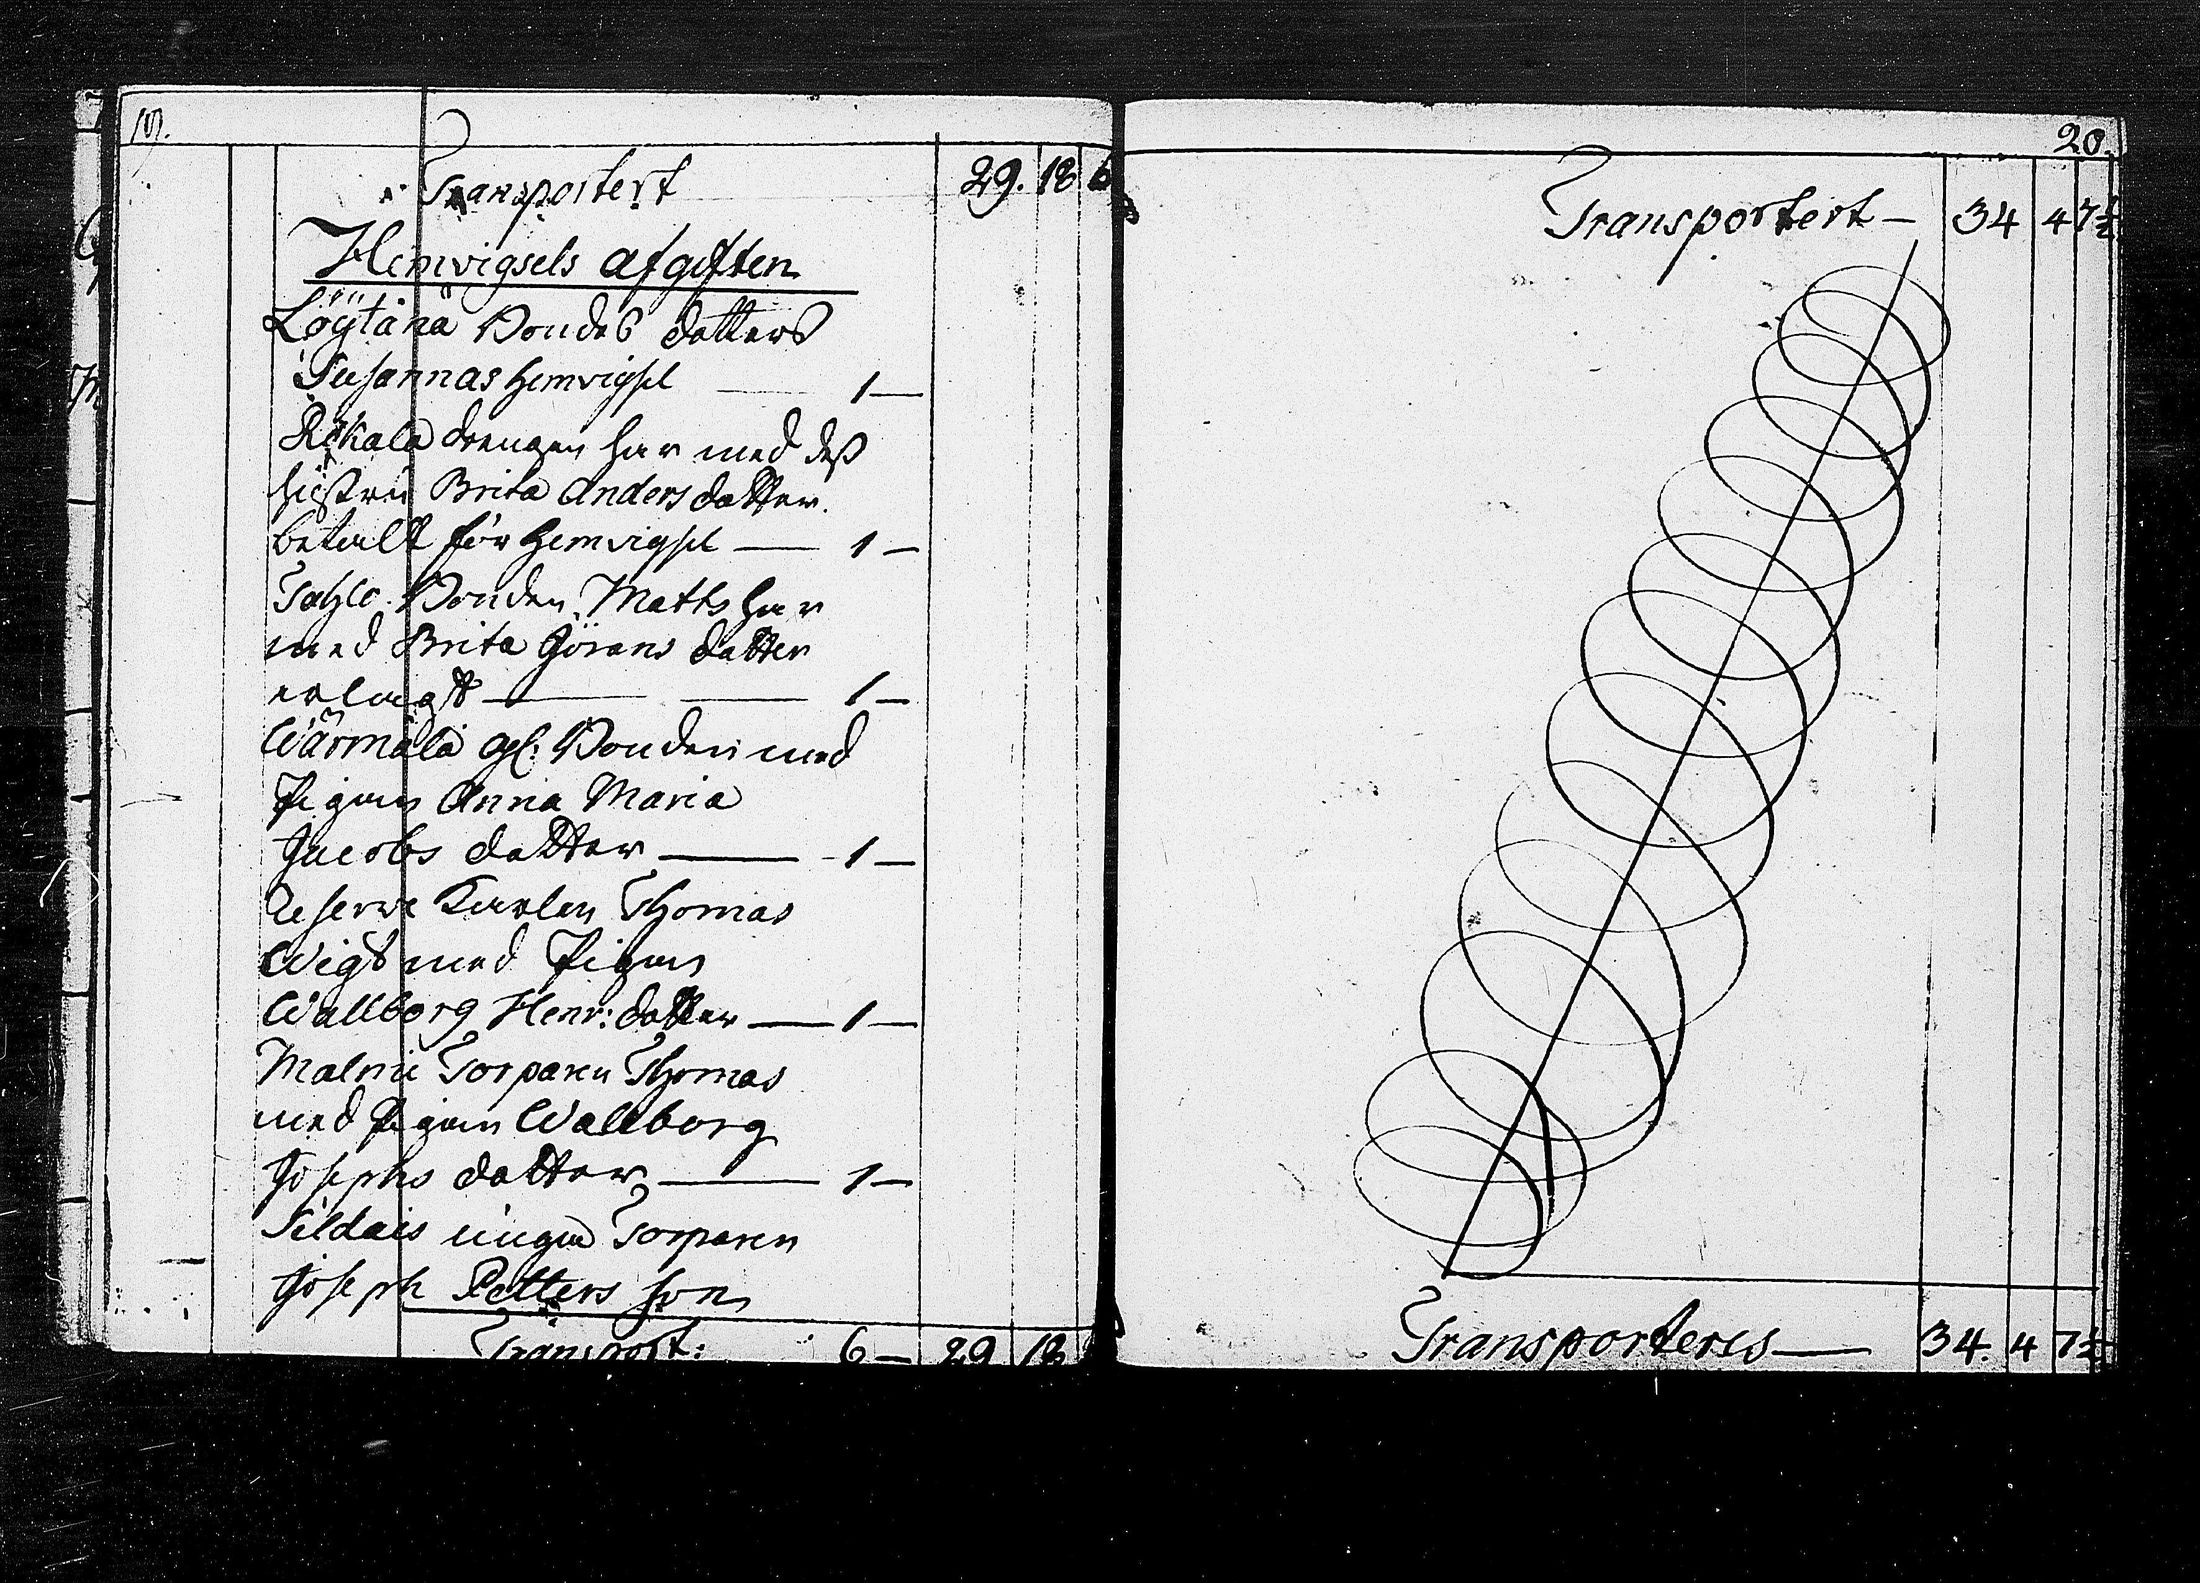 19.
Transportert 29. 18 6
Hemvigsels afgiften
Löytänä Bondes dotters
Susannas hemvigsel 1—
Rökala drengen har med dess
hustru Brita Anders dotter
betalt för hemvigsel — 1—
Sahlo Bonden Matts har
med Brita Görans dotter
erlagt — 1—
Wärmälä gl: Bonden med
Pigan Anna Maria
Jacobs dotter — 1—
Reserve Karlen Thomas
Wigt med Pigan
Wallborg Henr: dotter — 1—
Malmi Torparen Thomas
med Pigan Wallborg
Josephs dotter — 1—
Sildais unga Torparen
Joseph Petters son
Transport: 6— 29 18
20.
Transportert — 34 4 7½
Transporteres — 34. 4 7½